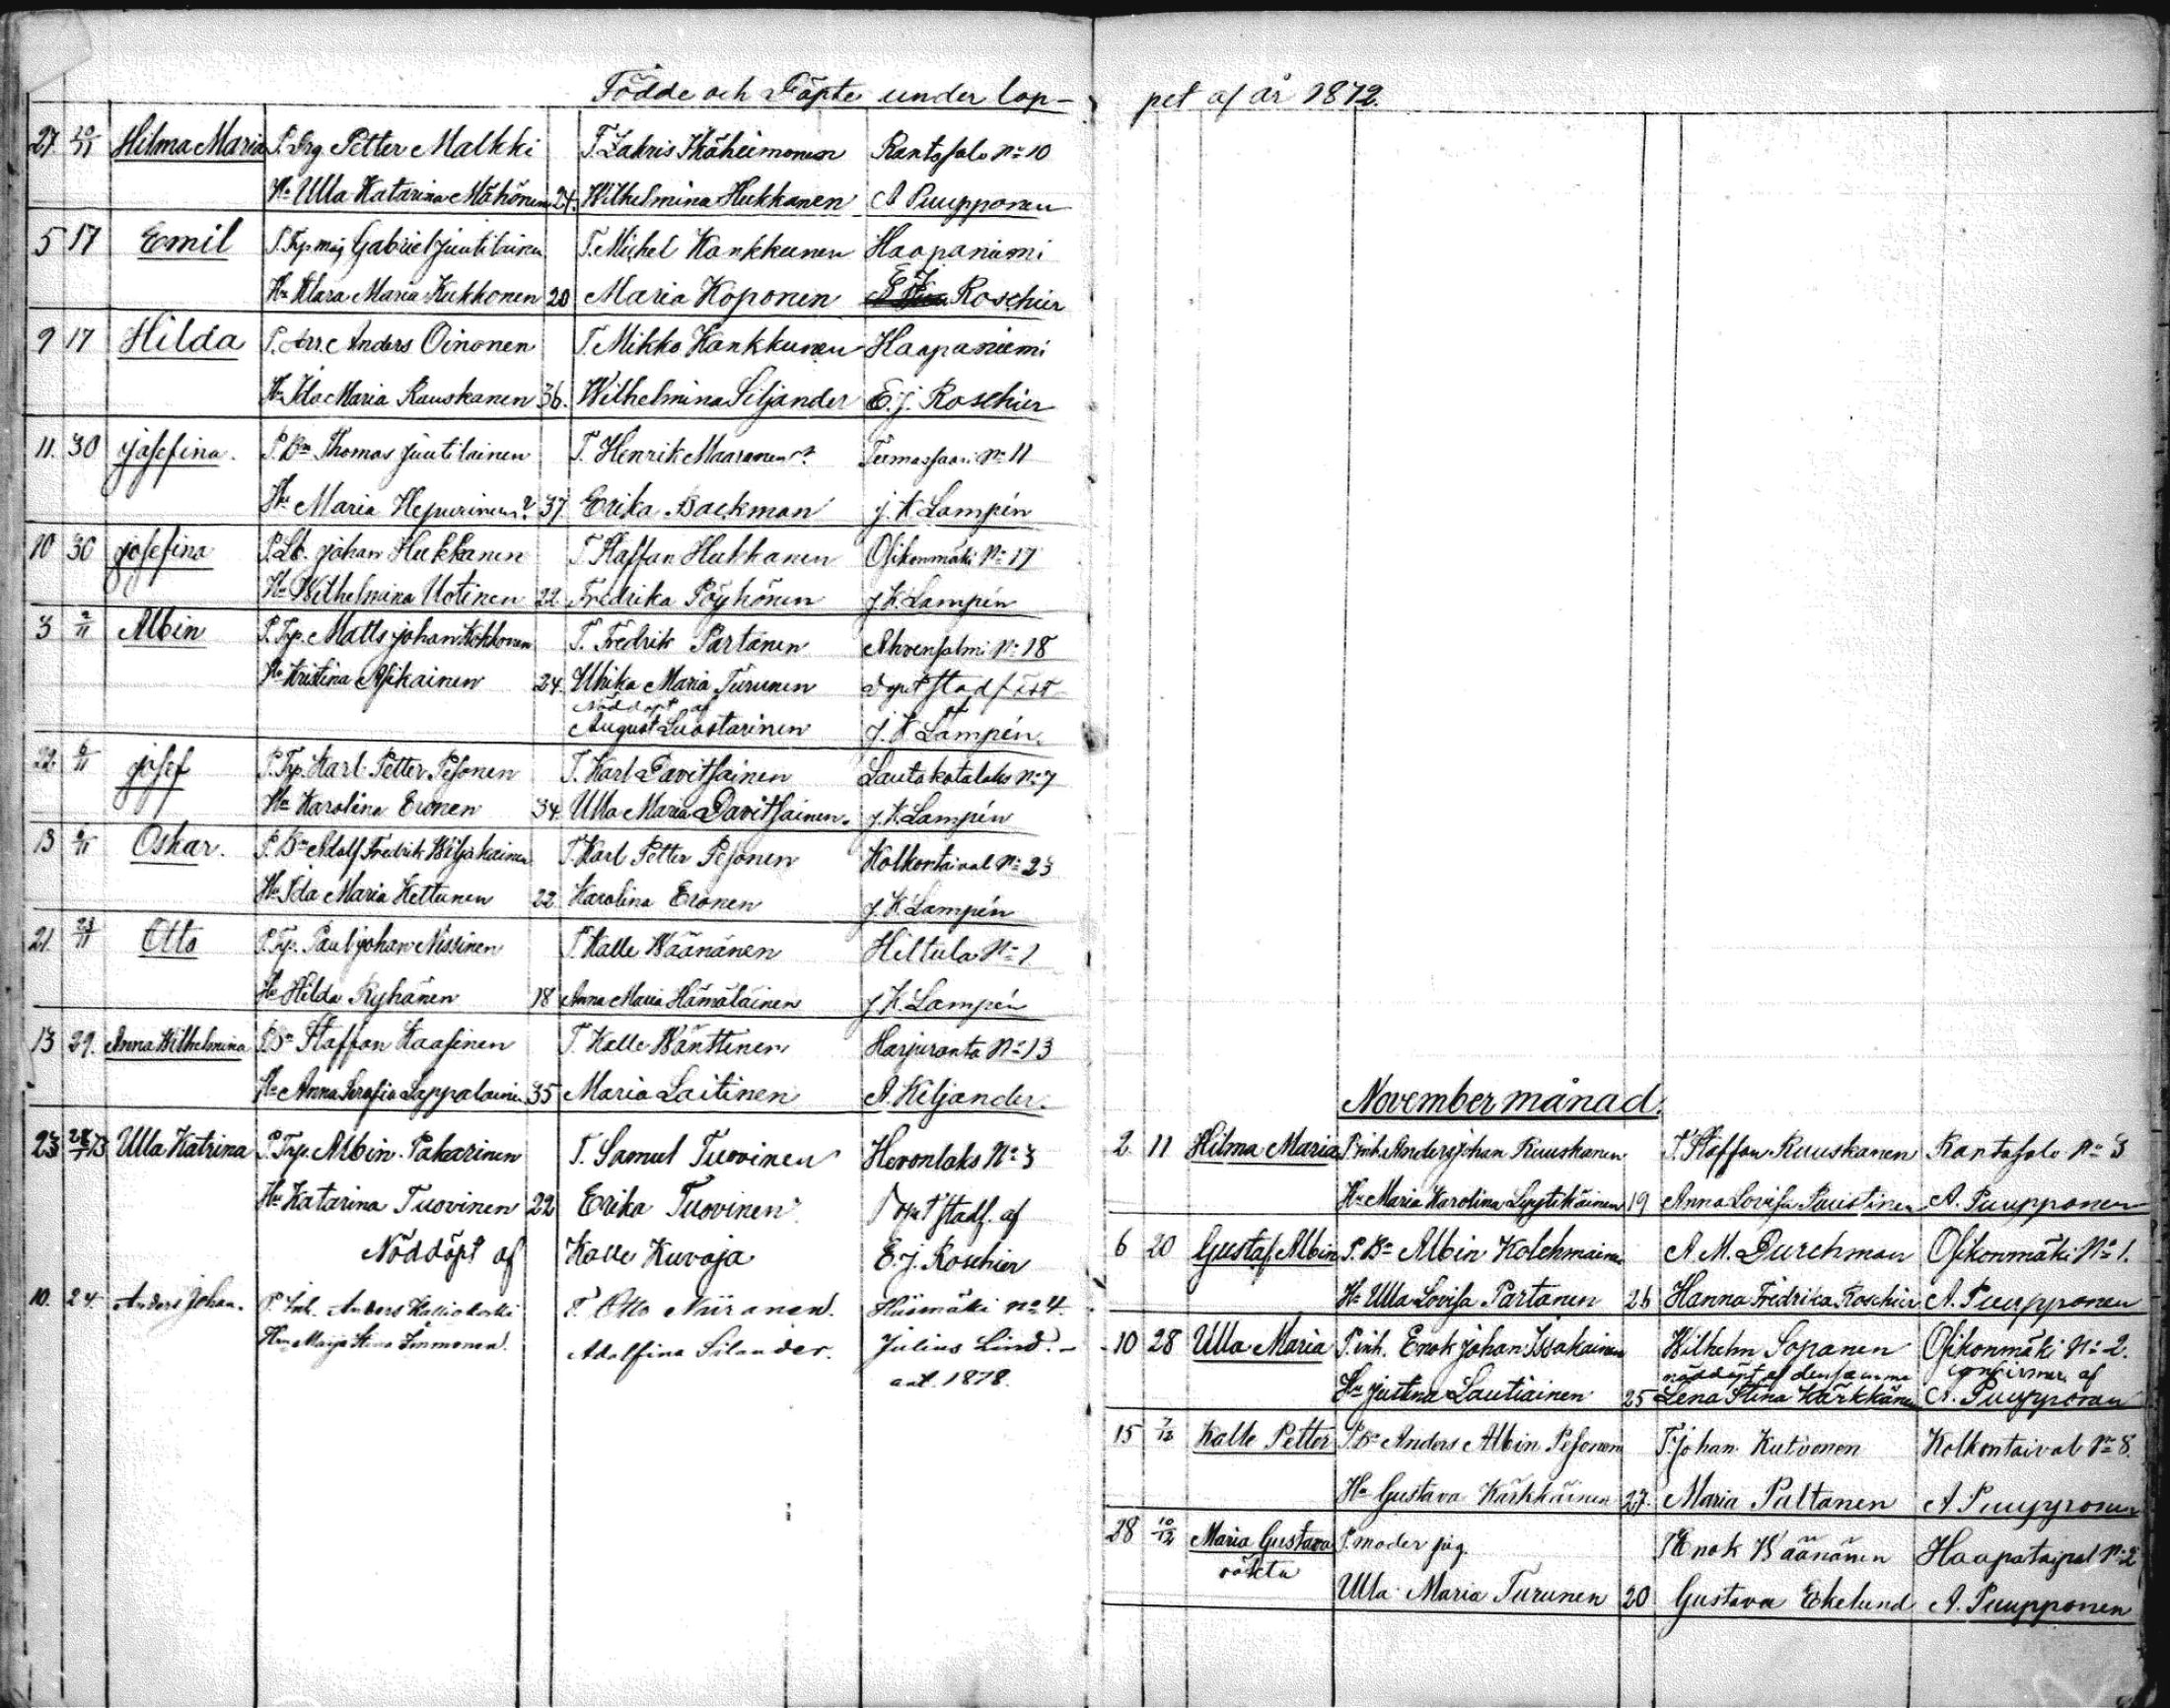 Födde och Döpte under lop-
27 10/11 Hilma Maria P. Drg. Petter Malkki T. Zakris Käheimonen Rantasalo No 10
Hu Ulla Katarina Mähönen 24. Wilhelmina Hukkanen A Puupponen
5 17 Emil Gabriel Juutilainen T. Michel Kankkunen Haapaniemi
Hu Klara Maria Kukkonen 20 Maria Koponen E. J. Roschier
9 17 Hilda P. Arr. Anders Oinonen T. Mikko Kankkunen Haapaniemi
Hu Ida Maria Ruuskanen 36. Wilhelmina Siljander E. J. Roschier
11. 30 Josefina. P. Bn Thomas Juutilainen T. Henrik Maaranen? Termassaari No 11
Hu Maria 37. Erika Backman J. K Lampén
10 30 Josefina P. Johan Hukkanen T Staffan Hukkanen Osikonmäki No 17
Hu Wilhelmina Uotinen 22 Fredrika Pöyhönen J. K. Lampén
3 2/11 Albin P. Trp. Matts Johan Kokkonen T. Fredrik Partanen Ahvensalmi No 18
Hu Kristina Asikainen 24. Ulrika Maria Turunen Dopet stadfäst
Nöddöpt af
August Luostarinen J. K Lampén.
22 6/11 Josef P. Trp. Karl Petter Pesonen T. Karl Davitsainen Lautakotalaks No 7
Hu Karolina Eronen 34. Ulla Maria Davitsainen. J. K. Lampén
13 6/11 Oskar. P. Bn Adolf Fredrik Wiljakainen T. Karl Petter Pesonen Kolkontaival No 23
Hu Ida Maria Kettunen 22. Karolina Eronen J. K. Lampén
21. 23/11 Otto P. Trp. Paul Johan Nissinen T. Kalle Wäänänen Hiltula No 1
Hu Hilda Ryhänen 18 Anna Maria Hämäläinen J. K. Lampén
13 29. Anna Wilhelmina P. Bn Staffan Kaasinen T. Kalle Wänttinen Harjuranta No 13
Hu Anna Serafia Lappalainen 35 Maria Laitinen A. Kiljander.
23 Ulla Katrina P. Trp. Albin Pakarinen T. Samuel Tuovinen Hevonlaks No 3
Hu Katarina Tuovinen 22 Erika Tuovinen Dopet stadf. af
Nöddöpt af Kalle Kuvaja E. J. Roschier
10. 24. Anders Johan. P. Inh. Anders Kalliokoski T. Otto Niiranen. Hiismäki No 4.
Hu Maija Stina Immonen. Adolfina Silander. Julius Lind.
ant. 1878.
pet af år 1872.
November månad.
2 11 Hilma Maria P. inh. Anders Johan Ruuskanen T. Staffan Ruuskanen Rantasalo No 3
Hu Maria Karolina Lyytikäinen 19 Anna Lovisa Paustinen A. Puupponen
6 20 Gustaf Albin P. Bn Albin Kolehmainen A. M. Durchman Osikonmäki No 1.
Hu Ulla Lovisa Partanen 26 Hanna Fredrika Roschier A. Puupponen
10 28 Ulla Maria P. inh. Enok Johan Issakainen Wilhelm Sopanen Osikonmäki No 2.
nöddöpt af densamma confirmer. af
Hu Justina Lautiainen 25 Lena Stina Kärkkänen A. Puupponen
15 7/12 Kalle Petter P. Bn Anders Albin Pesonen T. Johan Kutvonen Kolkontaival No 8.
Hu Gustava Kärkkäinen 27. Maria Pultanen A. Puupponen
28 10/12 Maria Gustava P. moder pig. T. Enok Wäänänen Haapataipal No 2
oäkta
Ulla Maria Turunen 20 Gustava Ekelund A. Puupponen